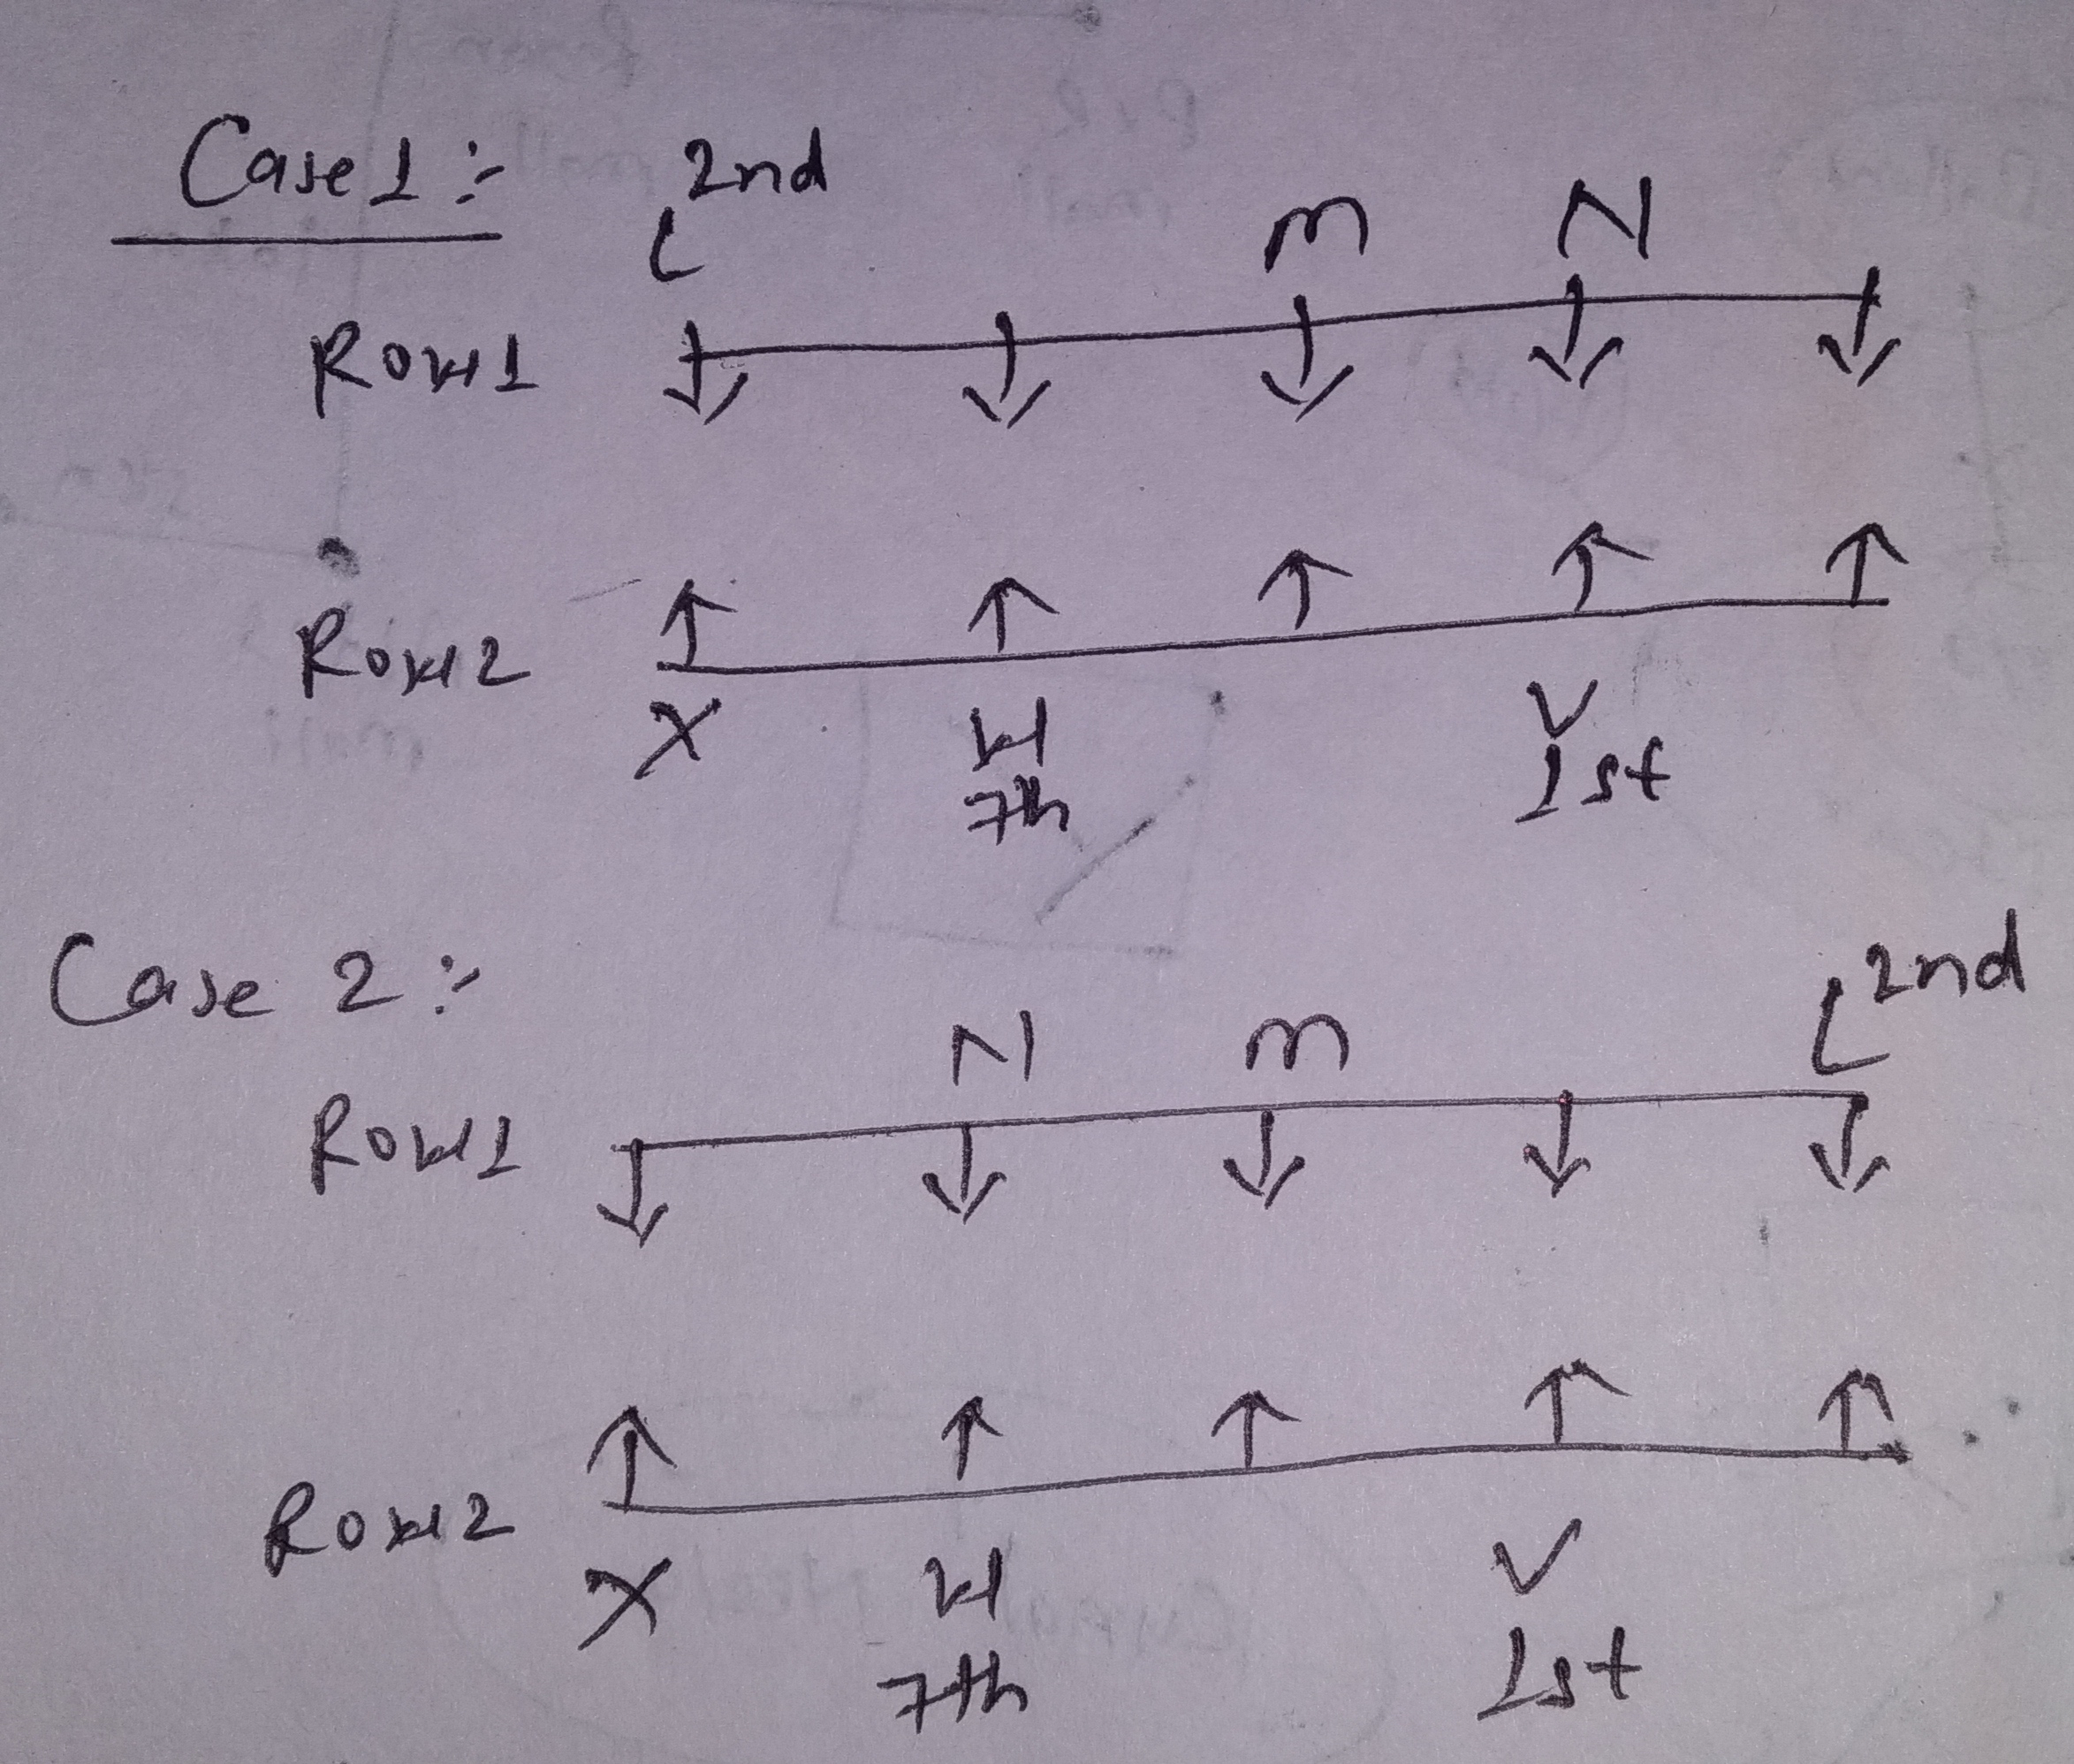 Case 1 :-
L 2nd m N
Row 1
Row 2
X W V
7th 1st
Case 2 :-
L 2nd
N m
Row 1
Row 2
X W V
7th 1st